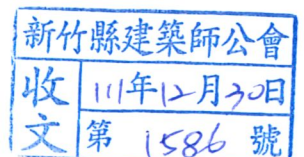 新竹縣建築師公會
收文
111年12月30日
第 1586 號